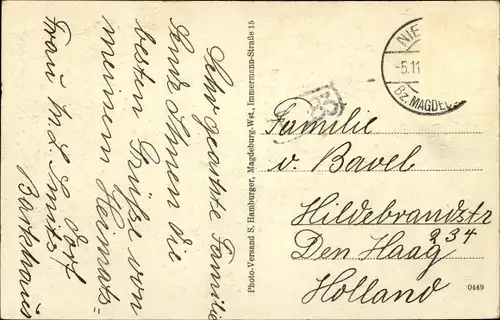 Sehr geehrte Familie
Sende Ihnen die
besten Grüße von
meinem Heimats=
dorf
Frau M. L. Smits
Barkhaus
Photo-Versand S. Hamburger, Magdeburg-Wst., Immermann-Straße 15
NIE
-5.11
Bz. MAGDEB
Familie
v. Bavel
Hildebrandstr
234
Den Haag
Holland
0449